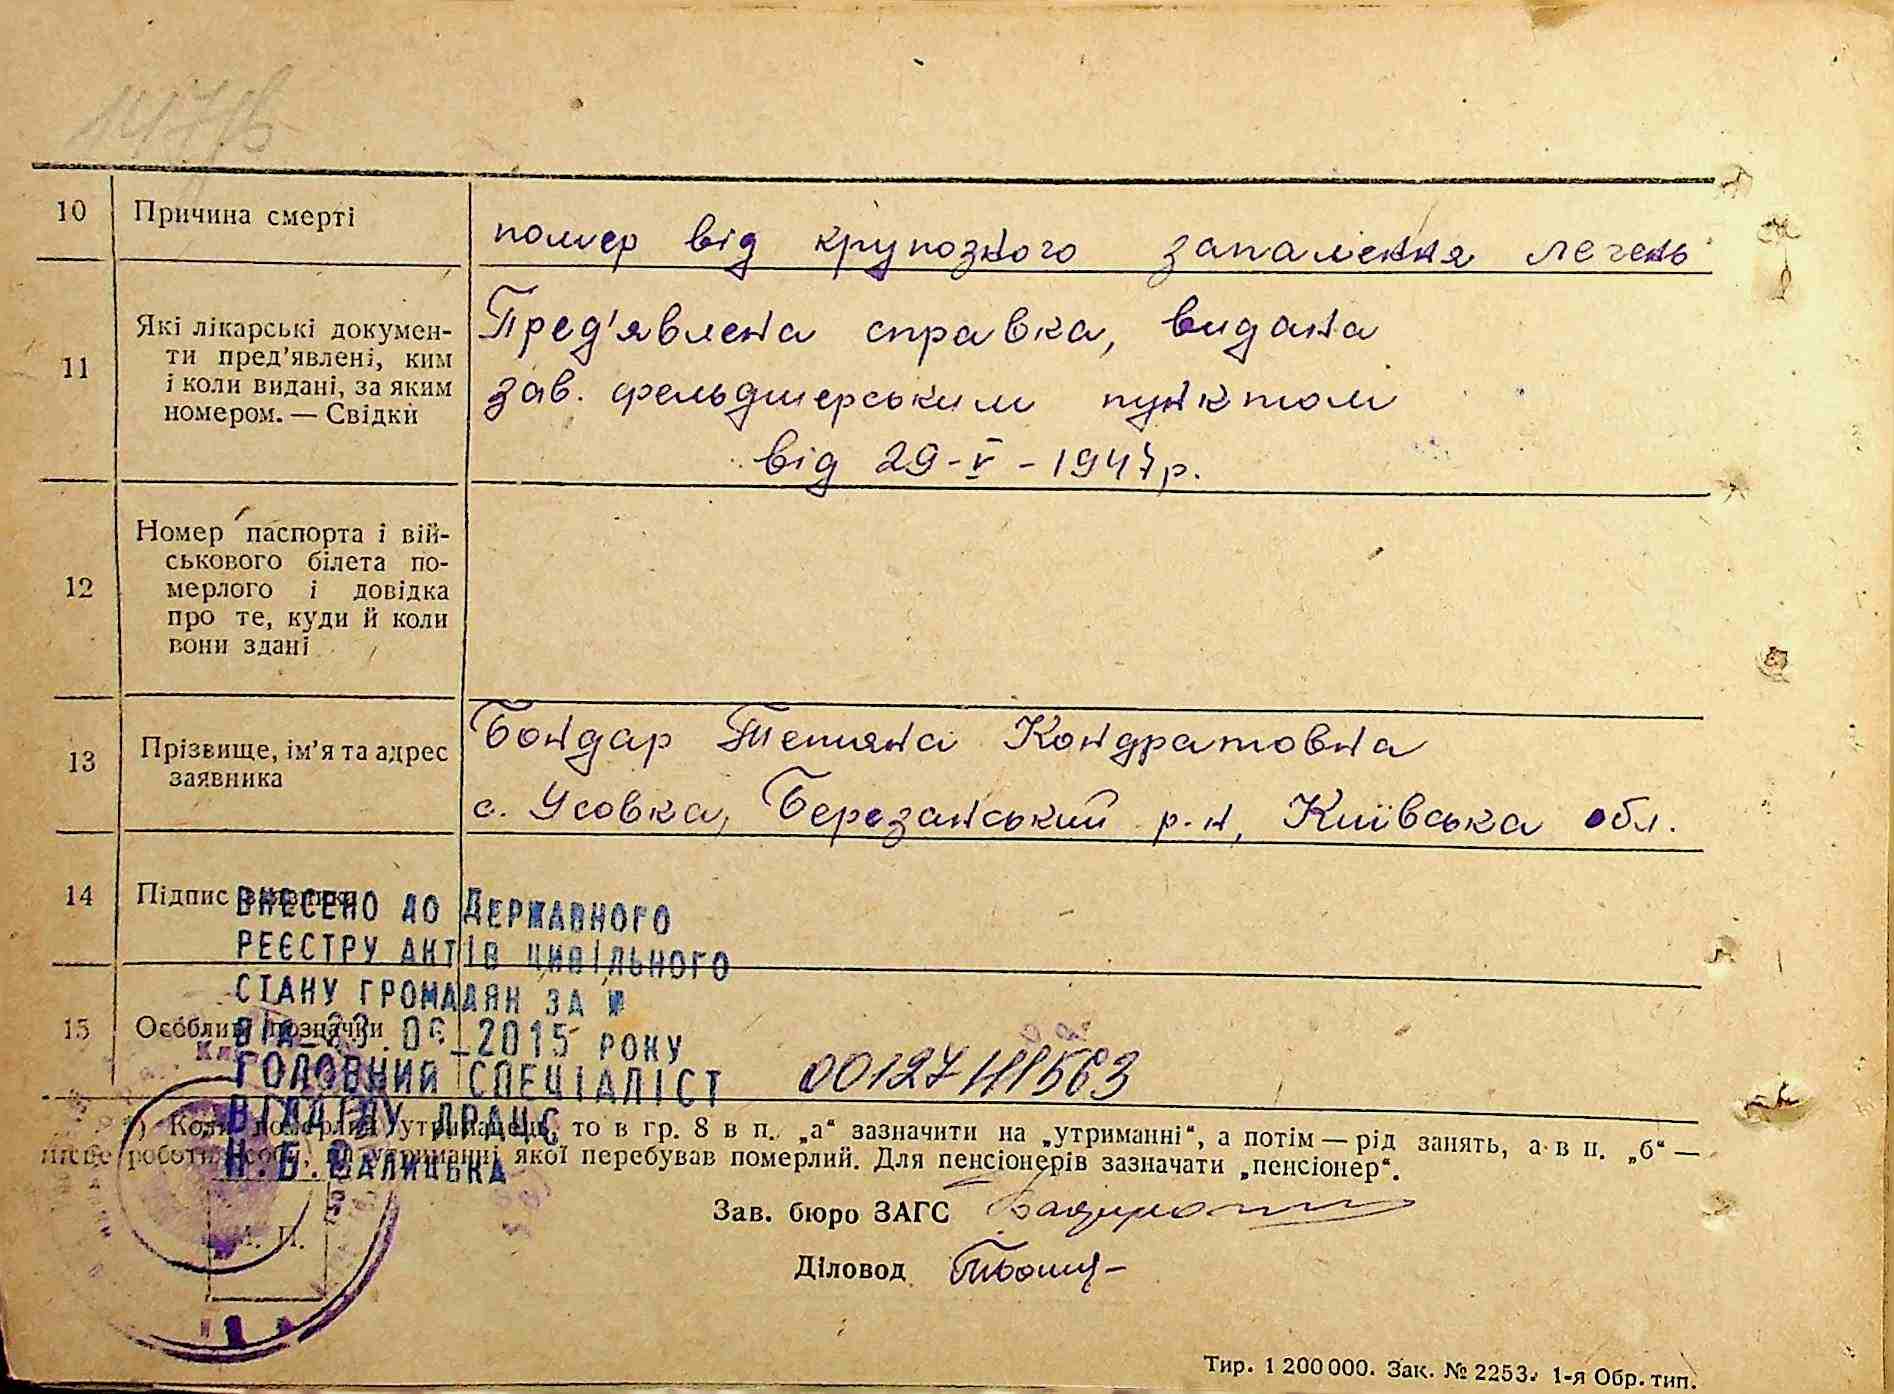 10 Причина смерті
помер від крупозного запалення легень
11 Які лікарські докумен-
ти пред’явлені, ким
і коли видані, за яким
номером. — Свідки
Пред'явлена справка, видана
зав. фельдшерським пунктом
від 29-V-1947р.
12 Номер паспорта і вій-
ськового білета по-
мерлого і довідка
про те, куди й коли
вони здані
13 Прізвище, ім’я та адрес
заявника
Бондар Тетяна Кондратовна
с. Усовка, Березанський р-н, Київська обл.
14 Підпис
ВНЕСЕНО ДО ДЕРЖАВНОГО
РЕЄСТРУ АКТІВ ЦИВІЛЬНОГО
СТАНУ ГРОМАДЯН ЗА №
15 Особливі позначки
ВІД 23.06.2015 РОКУ
ГОЛОВНИЙ СПЕЦІАЛІСТ
ВІДДІЛУ ДРАЦС
то в гр. 8 в п. „а“ зазначити на „утриманні“, а потім — рід занять, а в п. „б“ —
місце роботи особи, на утриманні якої перебував померлий. Для пенсіонерів зазначати „пенсіонер“.
Зав. бюро ЗАГС
Діловод
М. П.
Тир. 1 200 000. Зак. № 2253. 1-я Обр. тип.